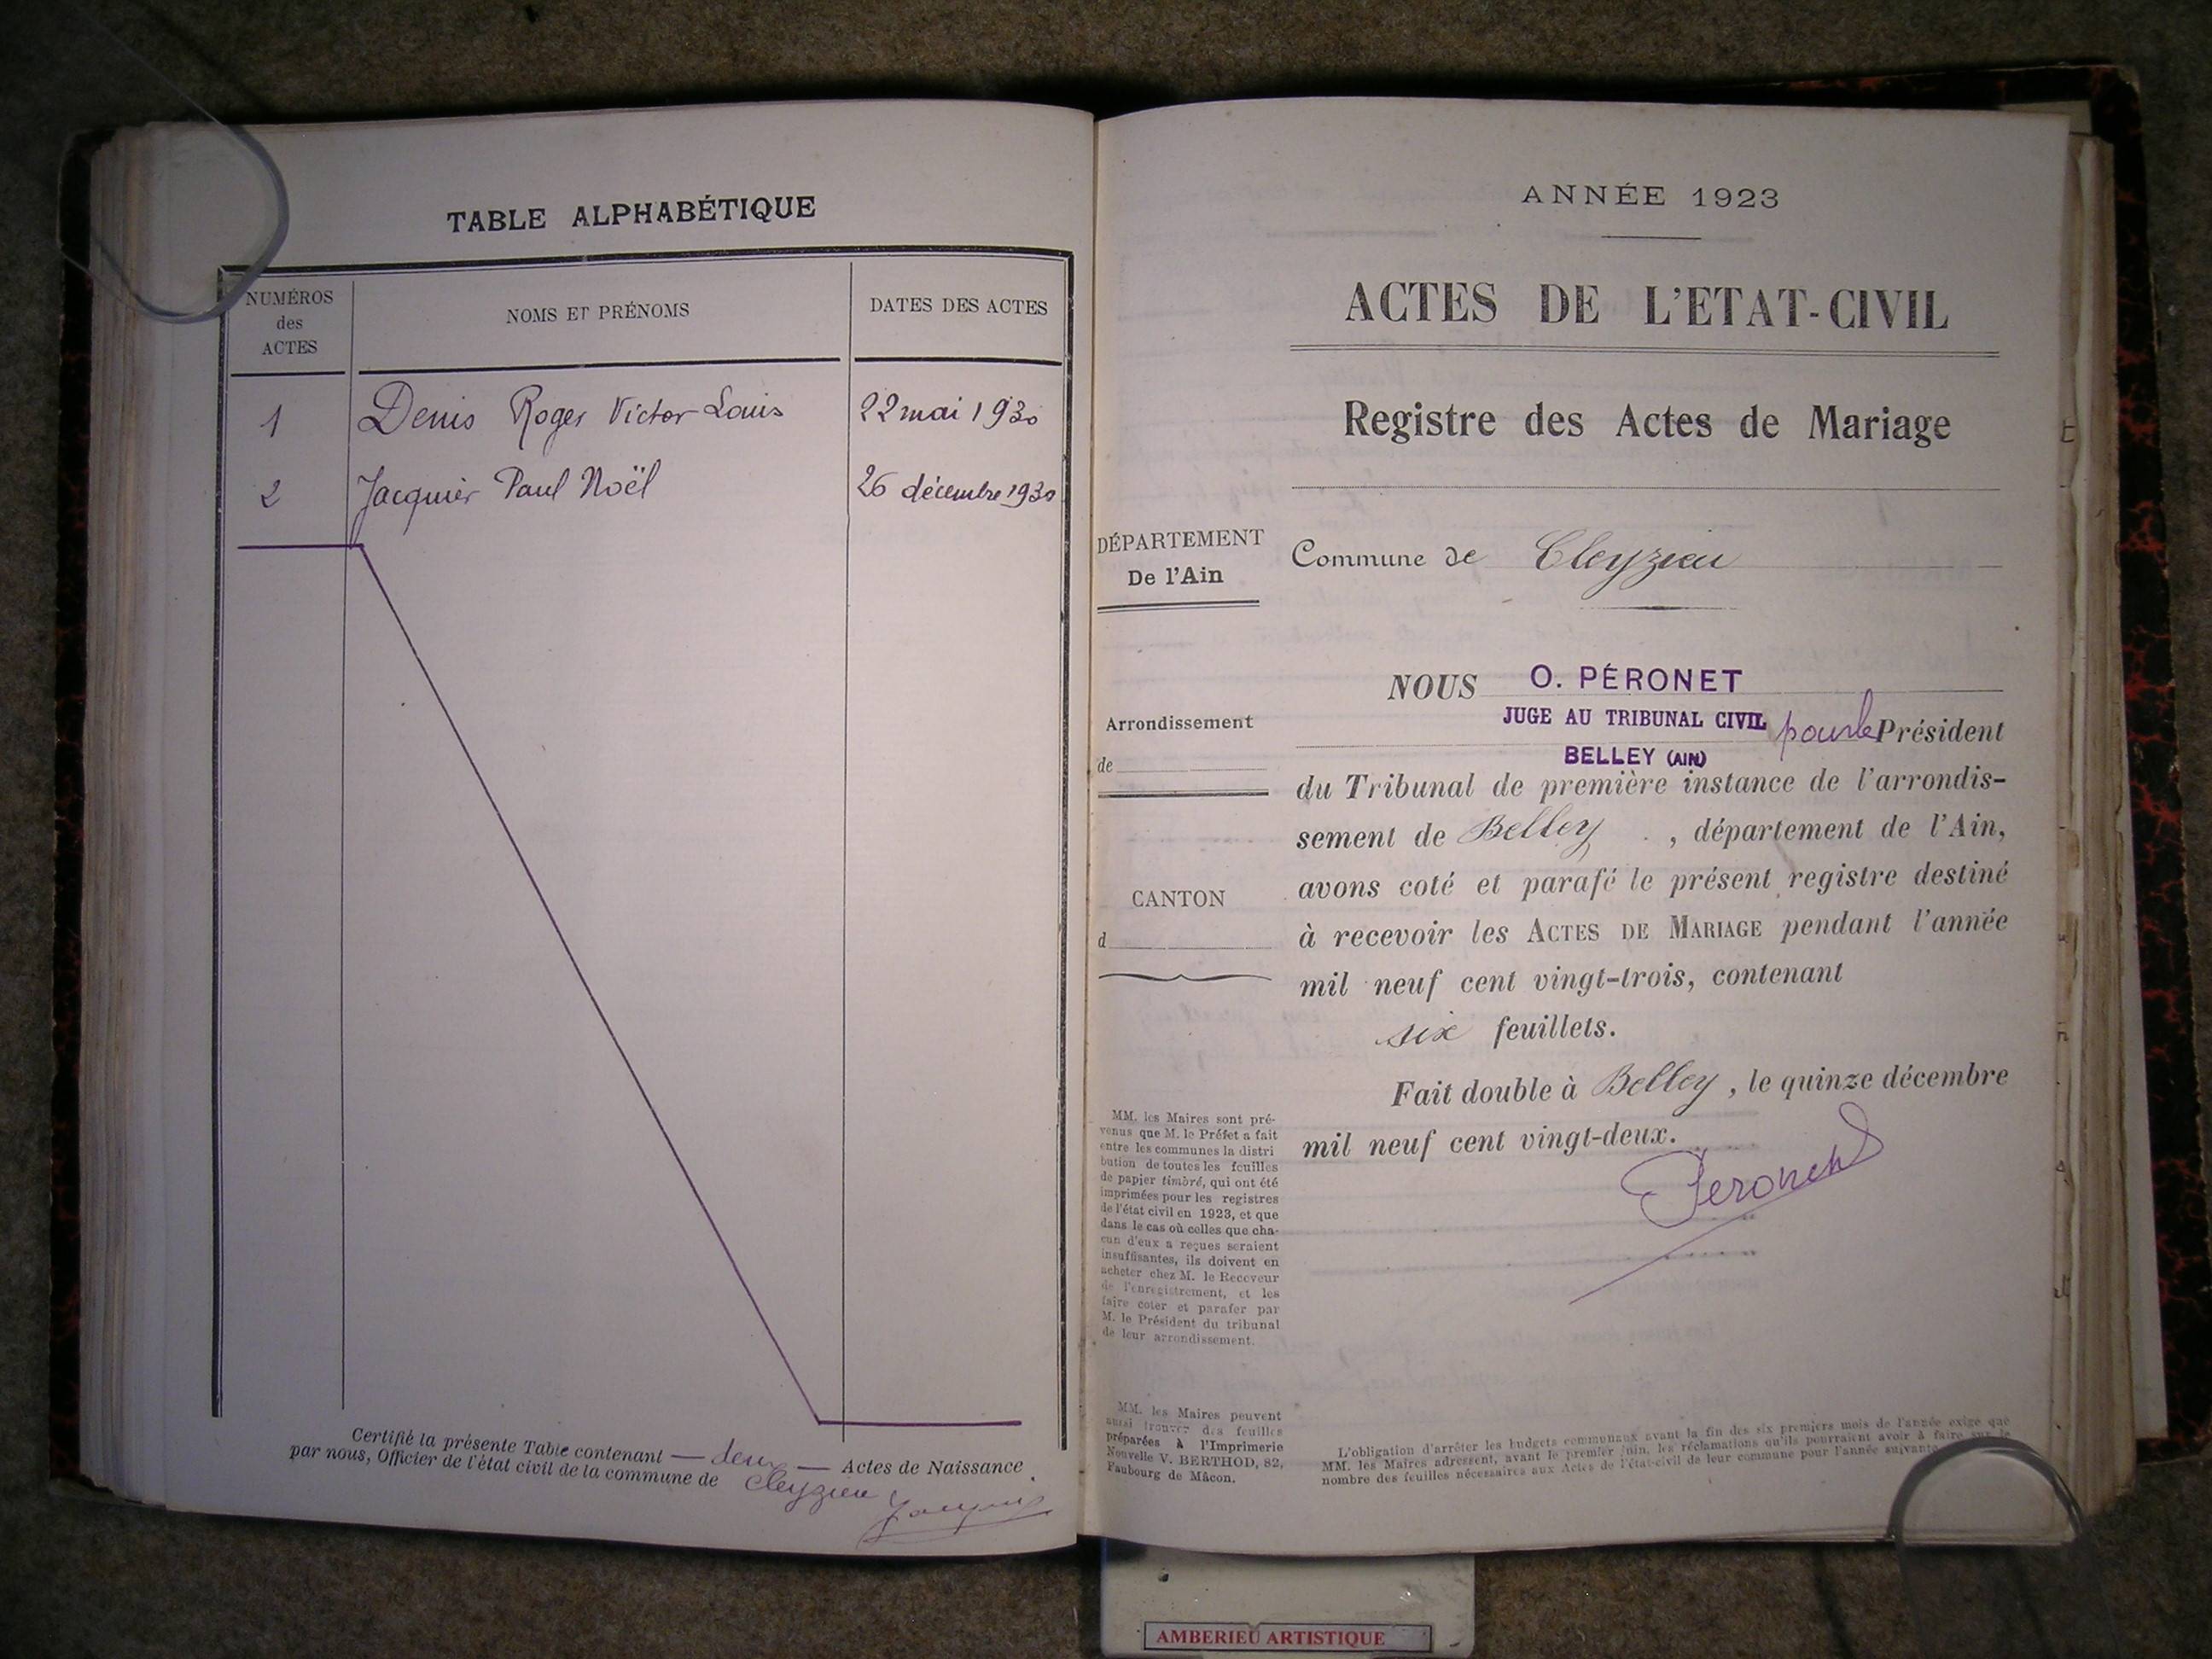 TABLE ALPHABÉTIQUE
NUMÉROS
des
ACTES
NOMS ET PRÉNOMS
DATES DES ACTES
1 Denis Roger Victor Louis 22 mai 1930
2 Jacquier Paul Noël 26 décembre 1930
Certifié la présente Table contenant — deux — Actes de Naissance
par nous, Officier de l'état civil de la commune de Cleyzieu
Jacquier
ANNÉE 1923
ACTES DE L'ETAT-CIVIL
Registre des Actes de Mariage
DÉPARTEMENT
De l'Ain
Commune de Cleyzieu
Arrondissement
de
CANTON
d
NOUS O. PÉRONET
JUGE AU TRIBUNAL CIVIL pour le Président
BELLEY (AIN)
du Tribunal de première instance de l'arrondis-
sement de Belley , département de l'Ain,
avons coté et parafé le présent registre destiné
à recevoir les ACTES DE MARIAGE pendant l'année
mil neuf cent vingt-trois, contenant
six feuillets.
Fait double à Belley, le quinze décembre
mil neuf cent vingt-deux.
Péronet
MM. les Maires sont pré-
venus que M. le Préfet a fait
entre les communes la distri
bution de toutes les feuilles
de papier timbré, qui ont été
imprimées pour les registres
de l'état civil en 1923, et que
dans le cas où celles que cha-
cun d'eux a reçues seraient
insuffisantes, ils doivent en
acheter chez M. le Receveur
de l'enregistrement, et les
faire coter et parafer par
M. le Président du tribunal
de leur arrondissement.
MM. les Maires peuvent
aussi trouver des feuilles
préparées à l'Imprimerie
Nouvelle V. BERTHOD, 82,
Faubourg de Mâcon.
L'obligation d'arrêter les budgets communaux avant la fin des six premiers mois de l'année exige que
MM. les Maires adressent, avant le premier juin, les réclamations qu'ils pourraient avoir à faire sur le
nombre des feuilles nécessaires aux Actes de l'état-civil de leur commune pour l'année suivante
AMBERIEU ARTISTIQUE